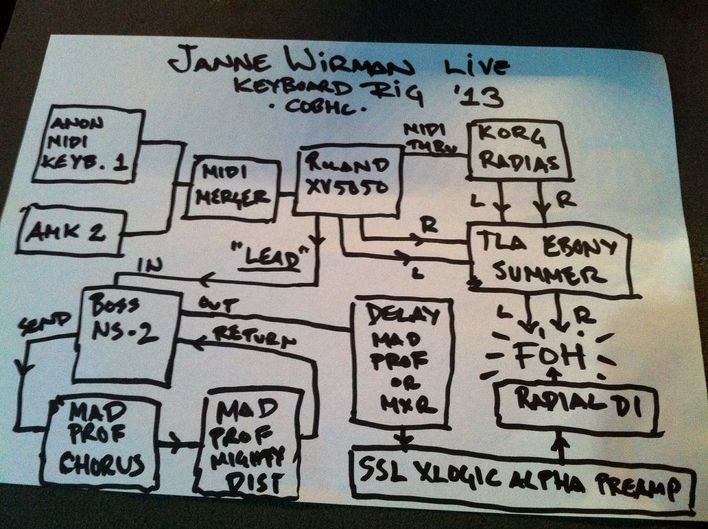 JANNE WIRMAN LIVE
KEYBOARD RIG '13
· COBHC ·
ANON
MIDI
KEYB. 1
AMK 2
MIDI
MERGER
ROLAND
XV5050
MIDI
THRU
KORG
RADIAS
L
R
R
L
TLA EBONY
SUMMER
L
R
FOH
RADIAL DI
"LEAD"
IN
BOSS
NS-2
OUT
SEND
RETURN
MAD
PROF
CHORUS
MAD
PROF
MIGHTY
DIST
DELAY
MAD
PROF
OR
MXR
SSL XLOGIC ALPHA PREAMP